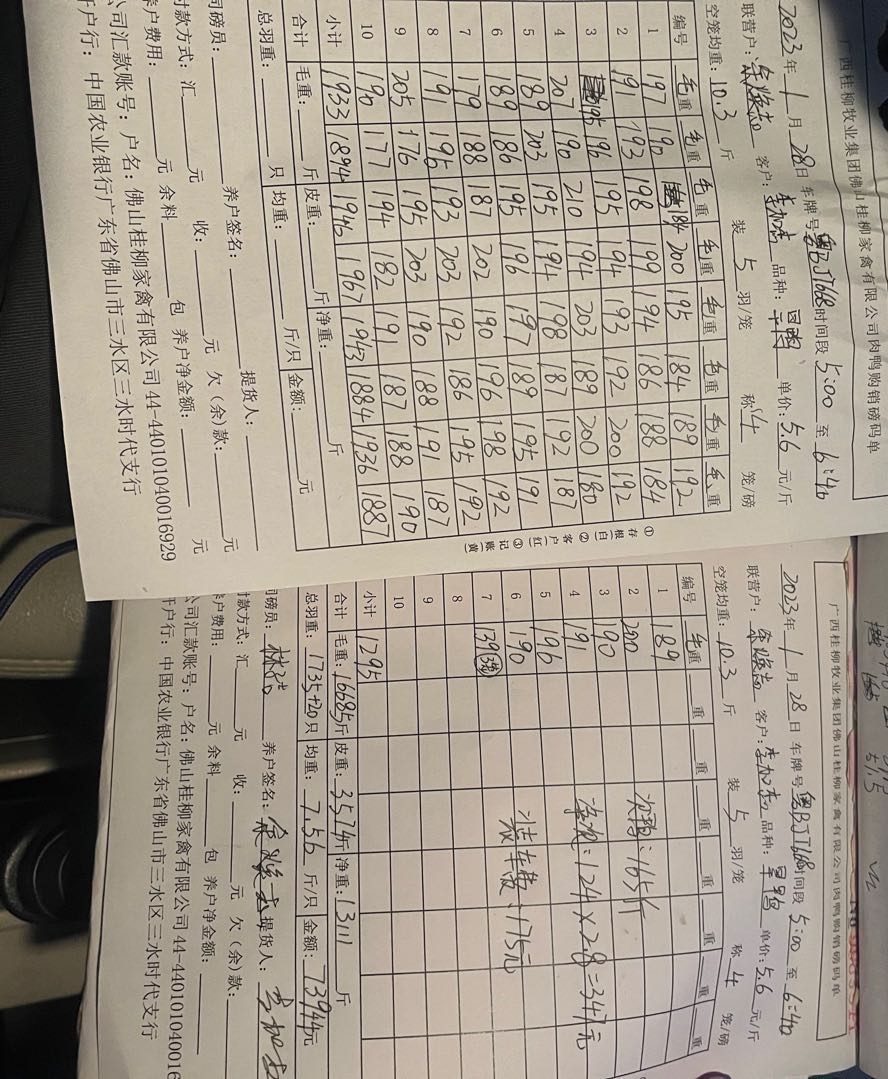 广西桂柳牧业集团佛山桂柳家禽有限公司肉鸭购销磅码单
2023年 1 月 28日 车牌号 粤BJT668 时间段 5:00 至 6:40
联营户: 客户: 李加志 品种: 单价: 5.6 元/斤
空笼均重: 10.3 斤 装 5 羽/笼 称 4 笼/磅
编号 毛重 毛重 毛重 毛重 毛重 毛重 毛重 毛重
1 197 190 184 200 195 184 189 192
2 191 193 198 199 194 186 188 184
3 195 196 195 194 193 192 200 192
4 207 190 210 194 203 189 200 180
5 189 203 195 194 198 187 192 187
6 189 186 195 196 197 189 195 191
7 179 188 187 202 190 196 198 192
8 191 195 193 203 192 186 195 192
9 205 176 195 203 190 188 191 187
10 190 177 194 182 191 187 188 190
小计 1933 1894 1946 1967 1943 1884 1936 1887
合计 毛重: 斤 皮重: 斤 净重: 斤
总羽重: 只 均重: 斤/只 金额: 元
司磅员: 养户签名: 提货人:
付款方式: 汇 元 收: 元 欠(余)款: 元
养户费用: 元 余料 包 养户净金额: 元
公司汇款账号: 户名: 佛山桂柳家禽有限公司 44-440101040016929
开户行: 中国农业银行广东省佛山市三水区三水时代支行
①存根(白) ②客户(红) ③记账(黄)
广西桂柳牧业集团佛山桂柳家禽有限公司肉鸭购销磅码单
2023年 1 月 28日 车牌号 粤BJT668 时间段 5:00 至 6:40
联营户: 客户: 李加志 品种: 单价: 5.6 元/斤
空笼均重: 10.3 斤 装 5 羽/笼 称 4 笼/磅
编号 毛重 重 重 重 重 重 重 重
1 189
2 200
3 190
4 191
5 196
6 190
7 139 3笼
8
9
10
次鸭: 165斤
124×2.8=347元
装车费: 175元
小计 1295
合计 毛重: 16685斤 皮重: 3574斤 净重: 13111 斤
总羽重: 1735+20只 均重: 7.56 斤/只 金额: 73944元
司磅员: 养户签名: 提货人: 李加志
付款方式: 汇 元 收: 元 欠(余)款:
养户费用: 元 余料 包 养户净金额:
公司汇款账号: 户名: 佛山桂柳家禽有限公司 44-440101040016
开户行: 中国农业银行广东省佛山市三水区三水时代支行